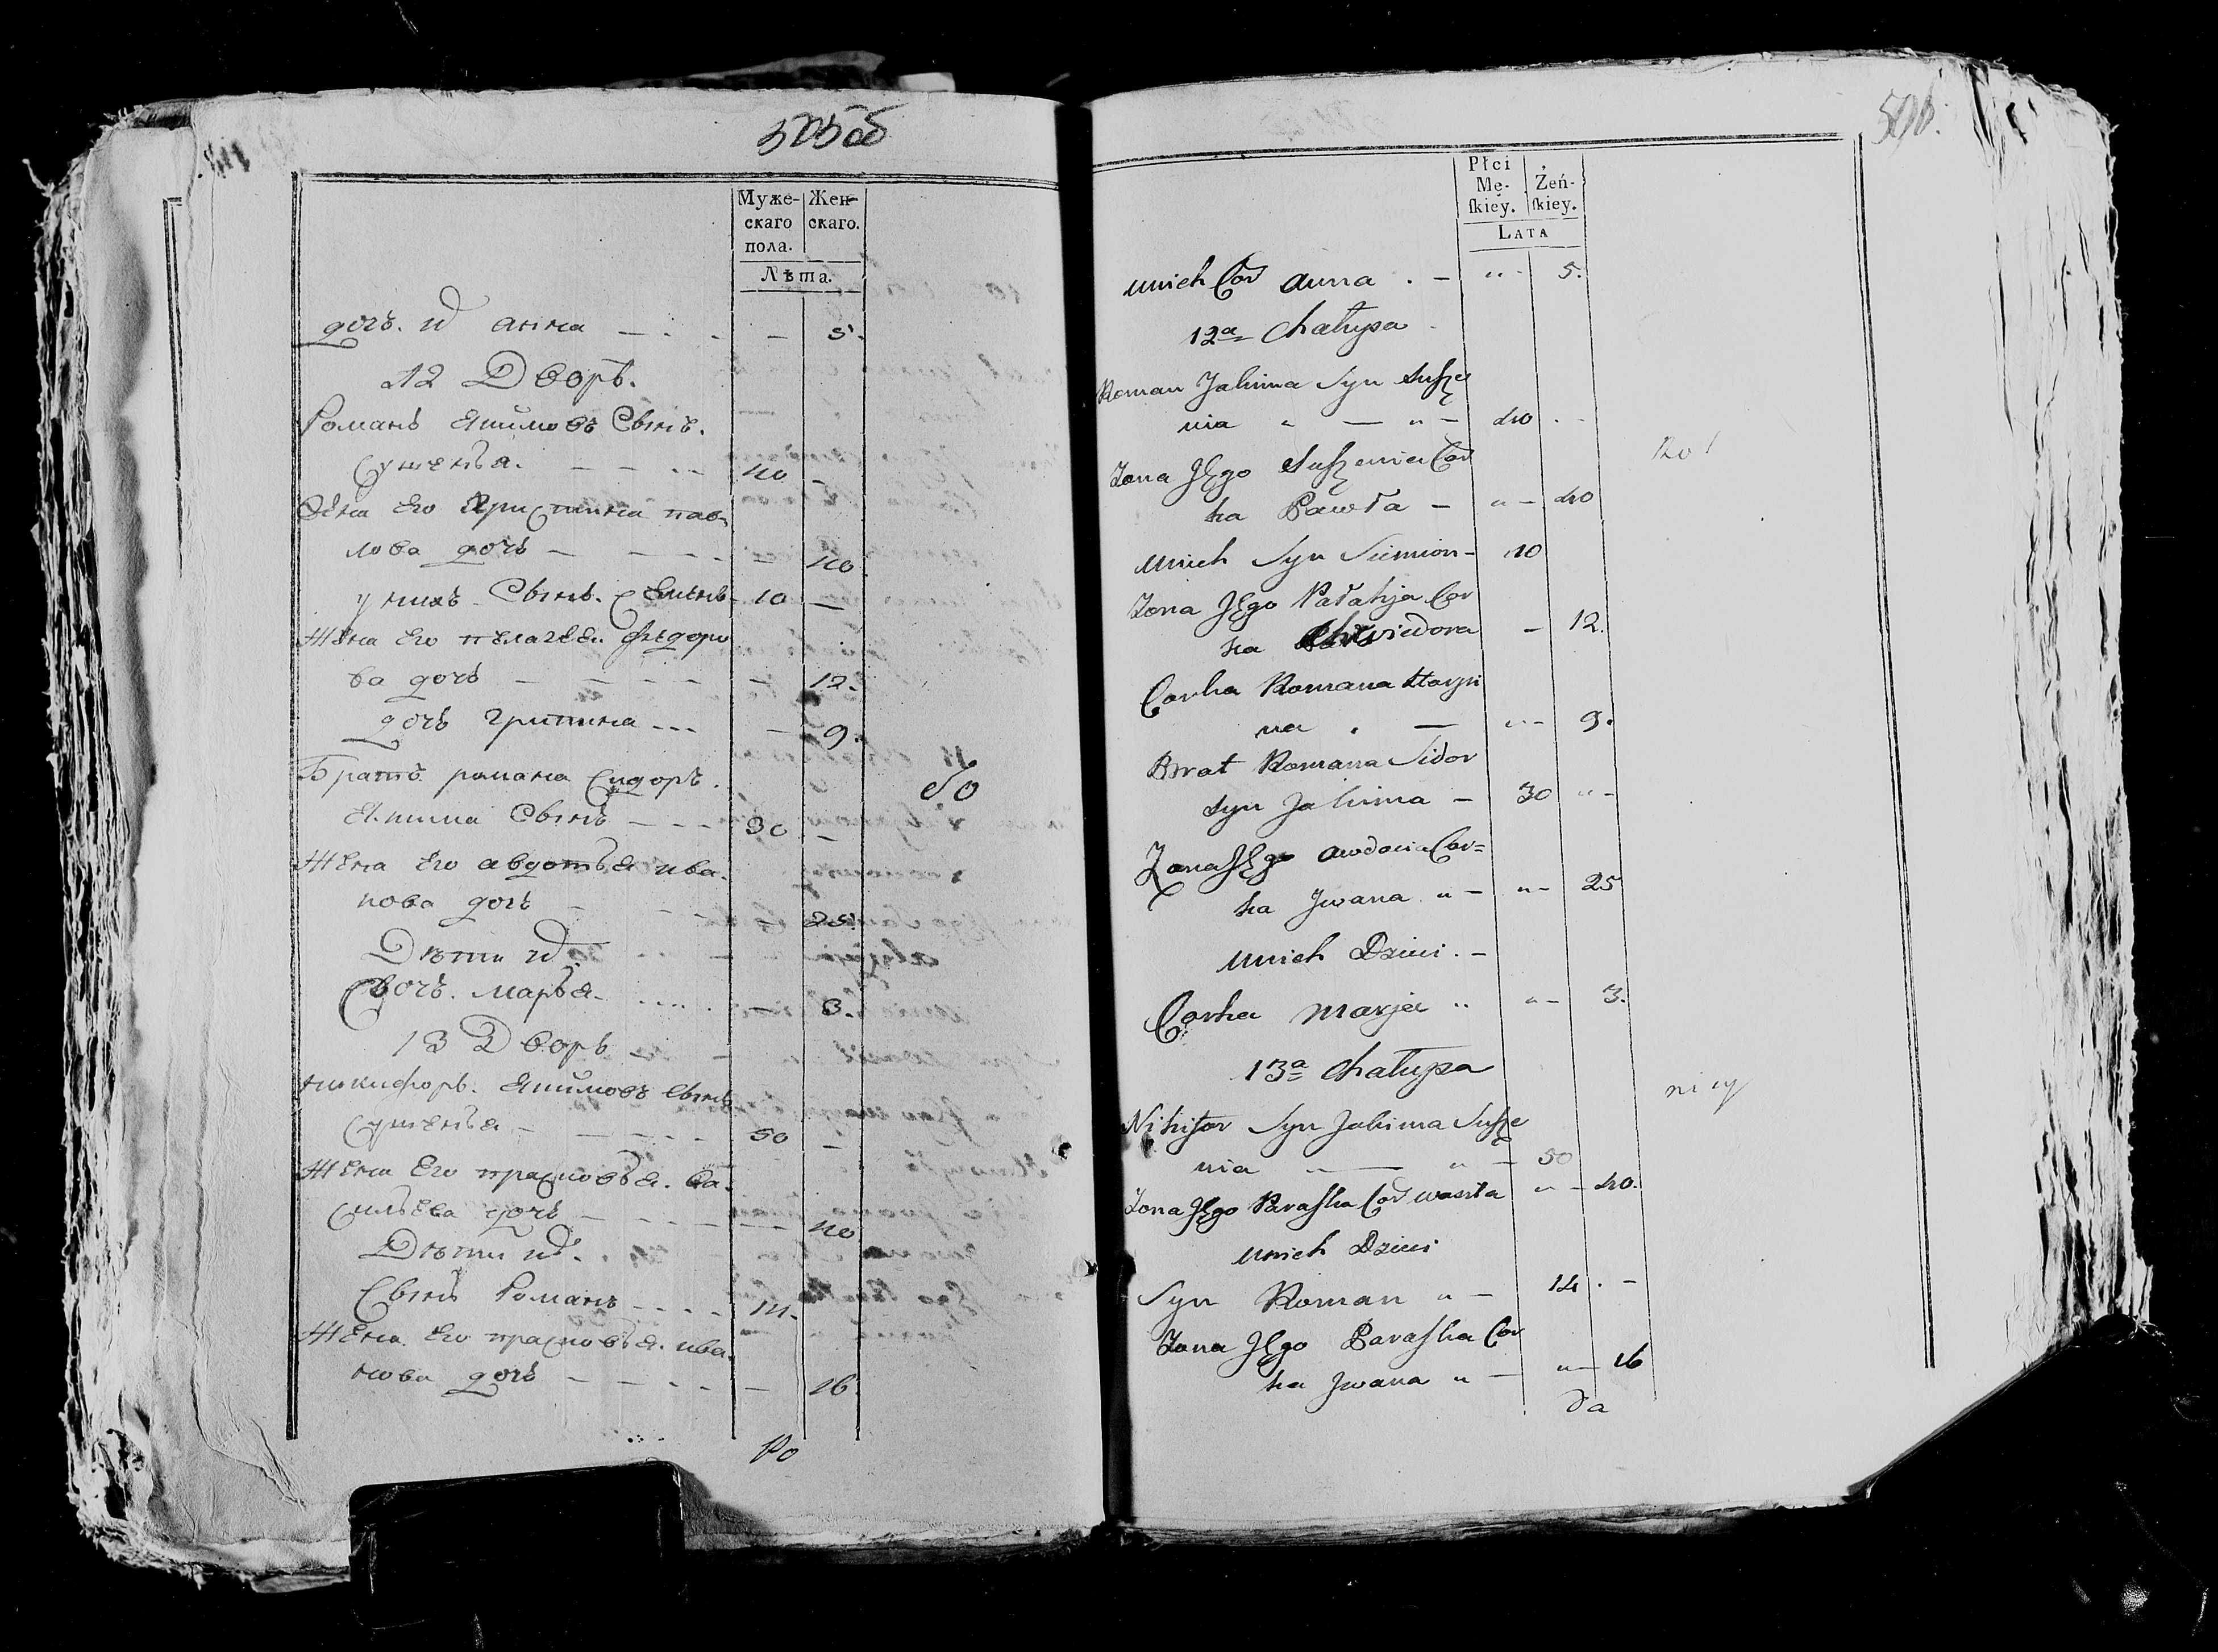 505 об
Муже-
скаго
пола.
Жен-
скаго.
Лѣта.
дочь. и Анна — . . — 5.
12 Дворъ.
Романъ Якимовъ Сынъ.
Сушеня. — — . . 40 —
Жена Его Христина пав-
лова дочь — — . . — 40
у нихъ Сынъ. Семенъ — 10 —
Жена Его пелагея Федоро
ва дочь — — — — 12.
дочь грипина . . . — 9.
Братъ романа Сидоръ.
Якима Сынъ — — . 30 —
Жена Его авдотья ива.
нова дочь — — 25.
Дети их
дочь. марья. . . . . — 3.
13 Дворъ
никифоръ. Якимовъ Сынъ
Сушеня — — . . 50 —
Жена Его прасковья. ва.
сильева дочь — — 40
Дети их.
Сынъ Романъ — . . 14.
Жена Его прасковья. ива.
нова дочь — — . . — 16.
506.
Płci
Mę-
ſkiey.
Żeń-
ſkiey.
LATA
Unich Cor Anna . — " - 5.
12a Chałupa
Roman Jakima Syn Susze
nia " — " - 40 . -
Zona Jego Suszenia Cor
ka Pawła — " - 40
Unich Syn Siemion - 10
Zona Jego Pałahja Cor
ka Chwiedora — 12.
Corka Romana Hrypi
na . — " - 9.
Brat Romana Sidor
Syn Jakima — 30 " -
Zona Jego Awdocia Cor=
ka Jwana " - " - 25
Unich Dzieci . -
Corka Marja " " - 3.
13a Chałupa
Nikifor Syn Jakima Susze
nia " — " - 50
Zona Jego Paraska Cor Wasila " - 40.
Unich Dzieci
Syn Roman " - 14 . -
Zona Jego Paraska Cor
ka Jwana " - " - 16
da